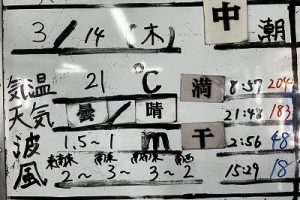 3/14(木) 中潮
気温 21 ℃ 満 8:57 204
天気 曇/晴 21:48 183
波 1.5~1 m 干 2:56 48
南東 南東 南西
風 2~3~3~2 15:29 18